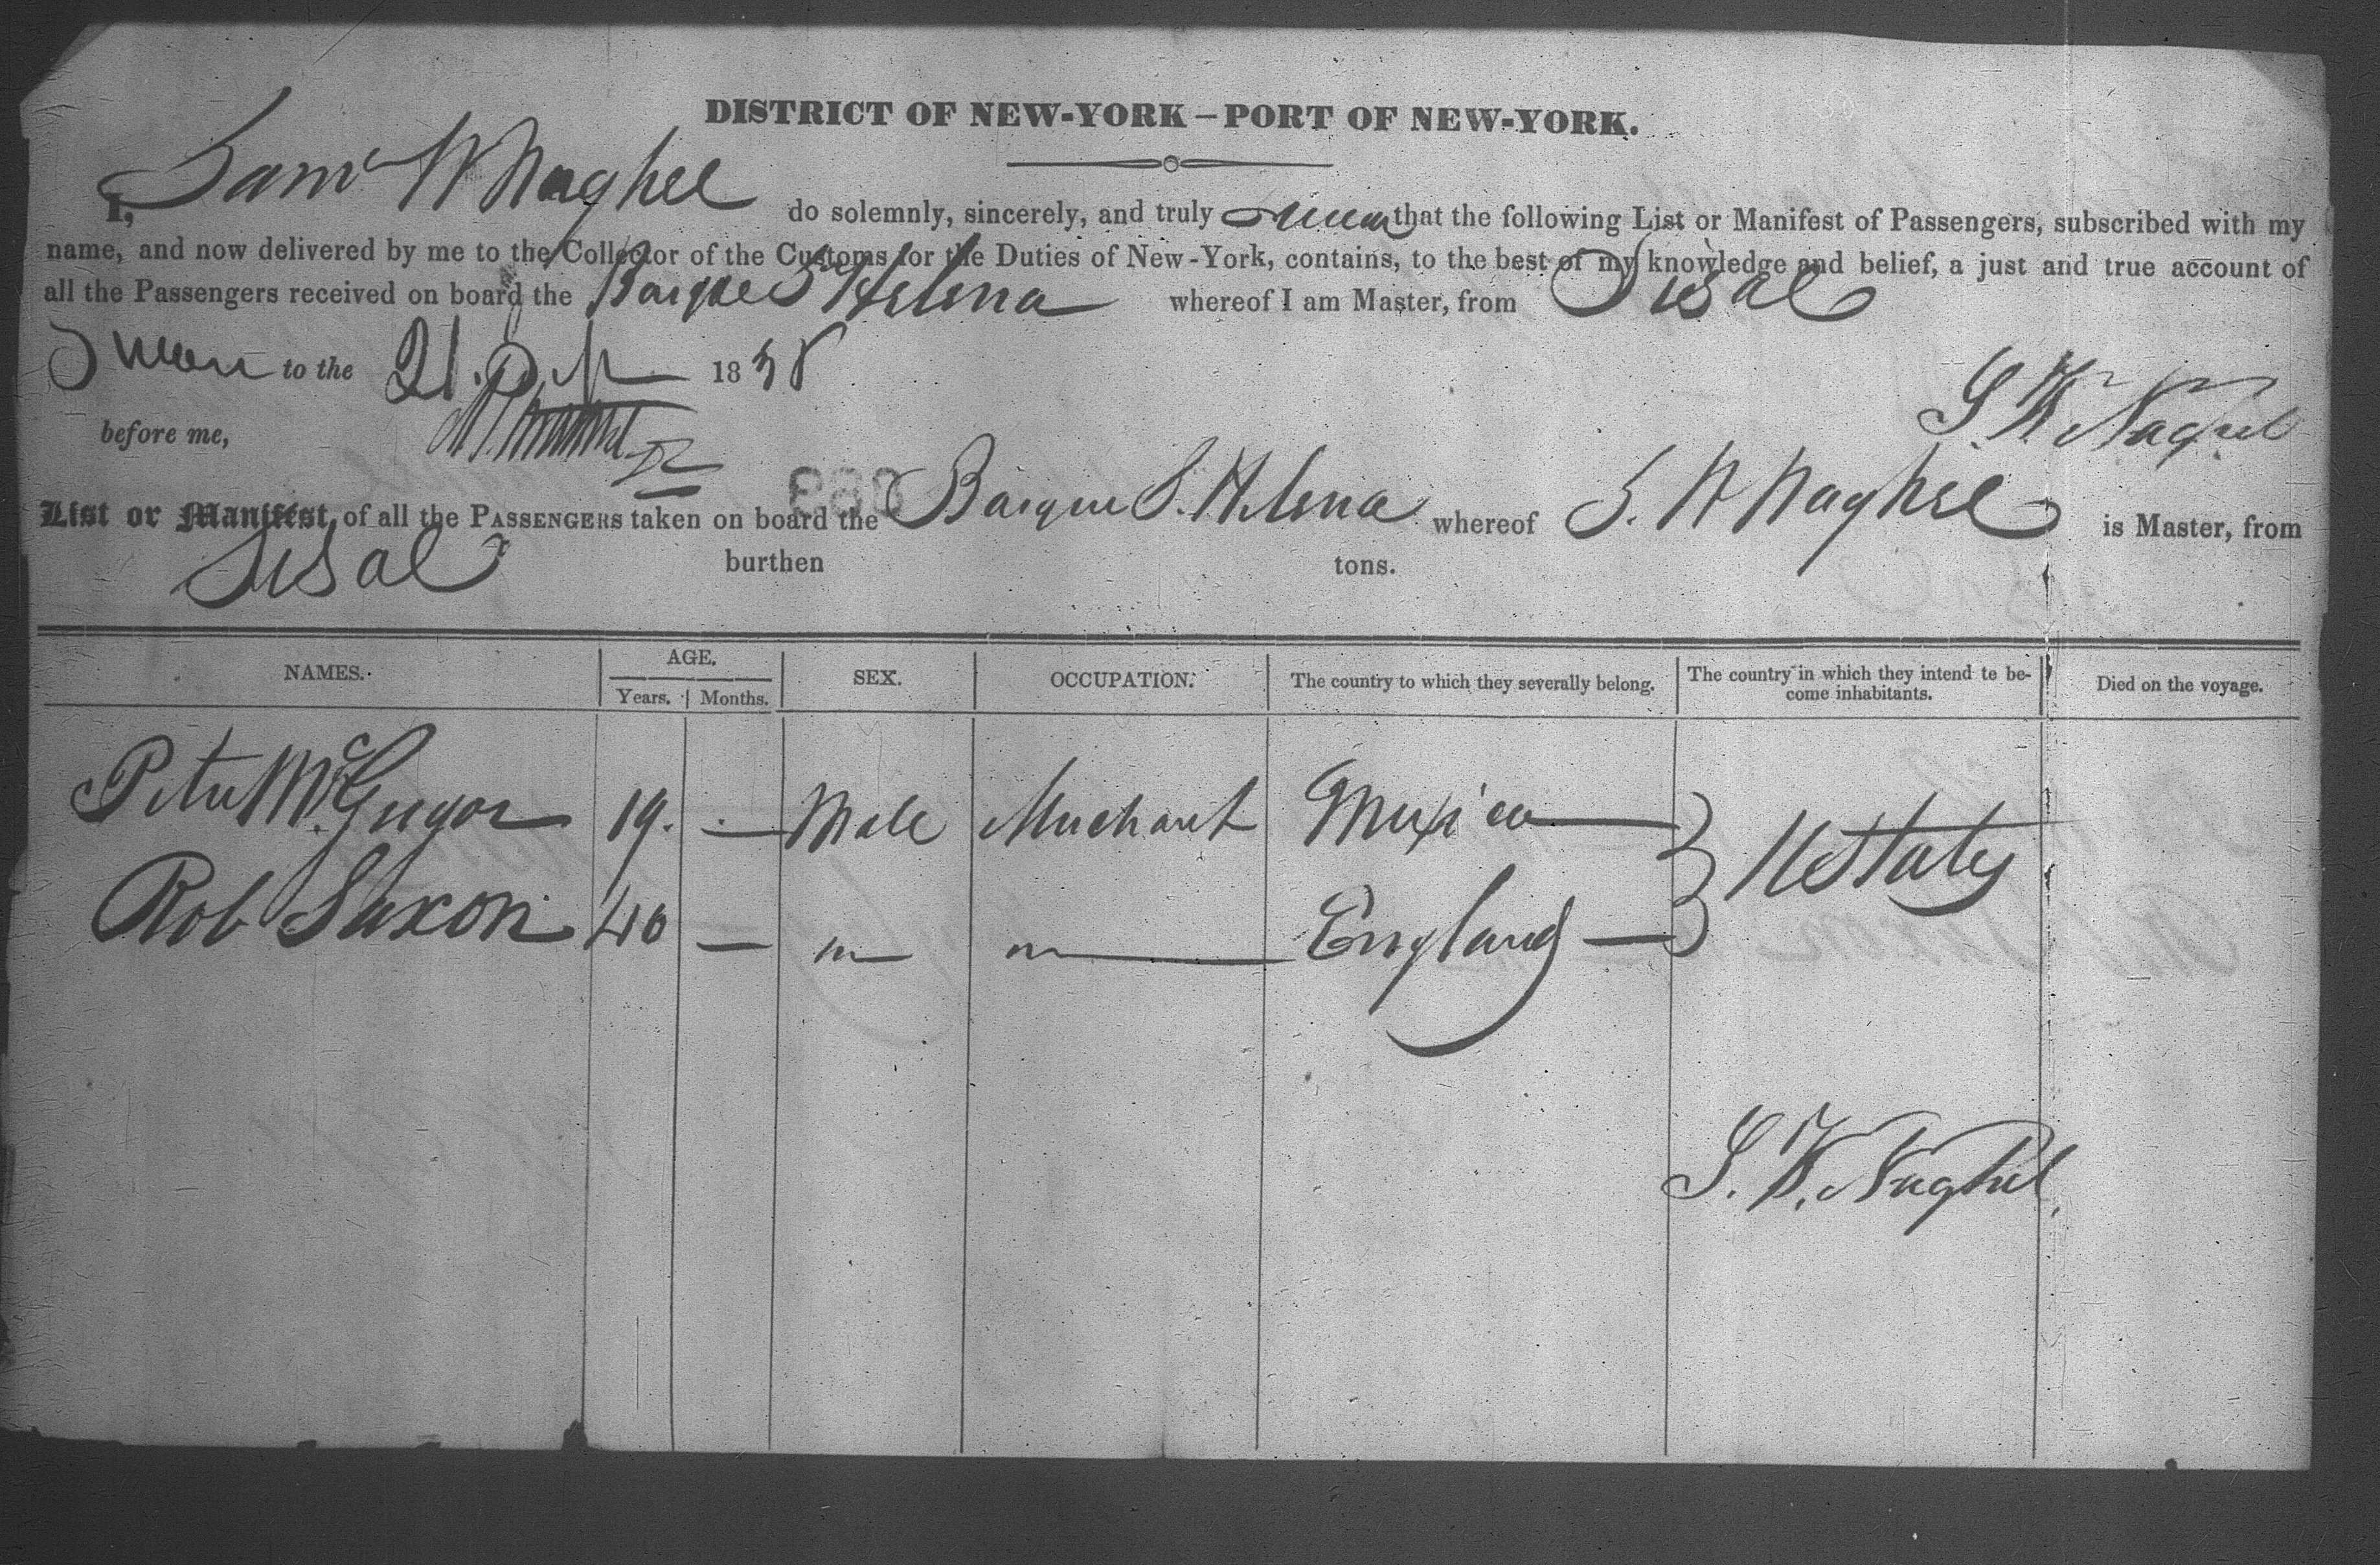 DISTRICT OF NEW-YORK – PORT OF NEW-YORK.
I, Saml W Naghel do solemnly, sincerely, and truly swear that the following List or Manifest of Passengers, subscribed with my
name, and now delivered by me to the Collector of the Customs for the Duties of New-York, contains, to the best of my knowledge and belief, a just and true account of
all the Passengers received on board the Barque St Helena whereof I am Master, from Sisal
Sworn to the 21. 1838
before me,
S. W. Naghel
List or Manifest, of all the PASSENGERS taken on board the Barque S. Helena whereof S. W Naghel is Master, from
Sisal burthen tons.
NAMES. AGE. SEX. OCCUPATION. The country to which they severally belong. The country in which they intend to be- Died on the voyage.
Years. Months. come inhabitants.
Peter McGregor 19. — Male Merchant Mexico — U States
Rob Saxon 40 — " " England —
S. W. Naghel.